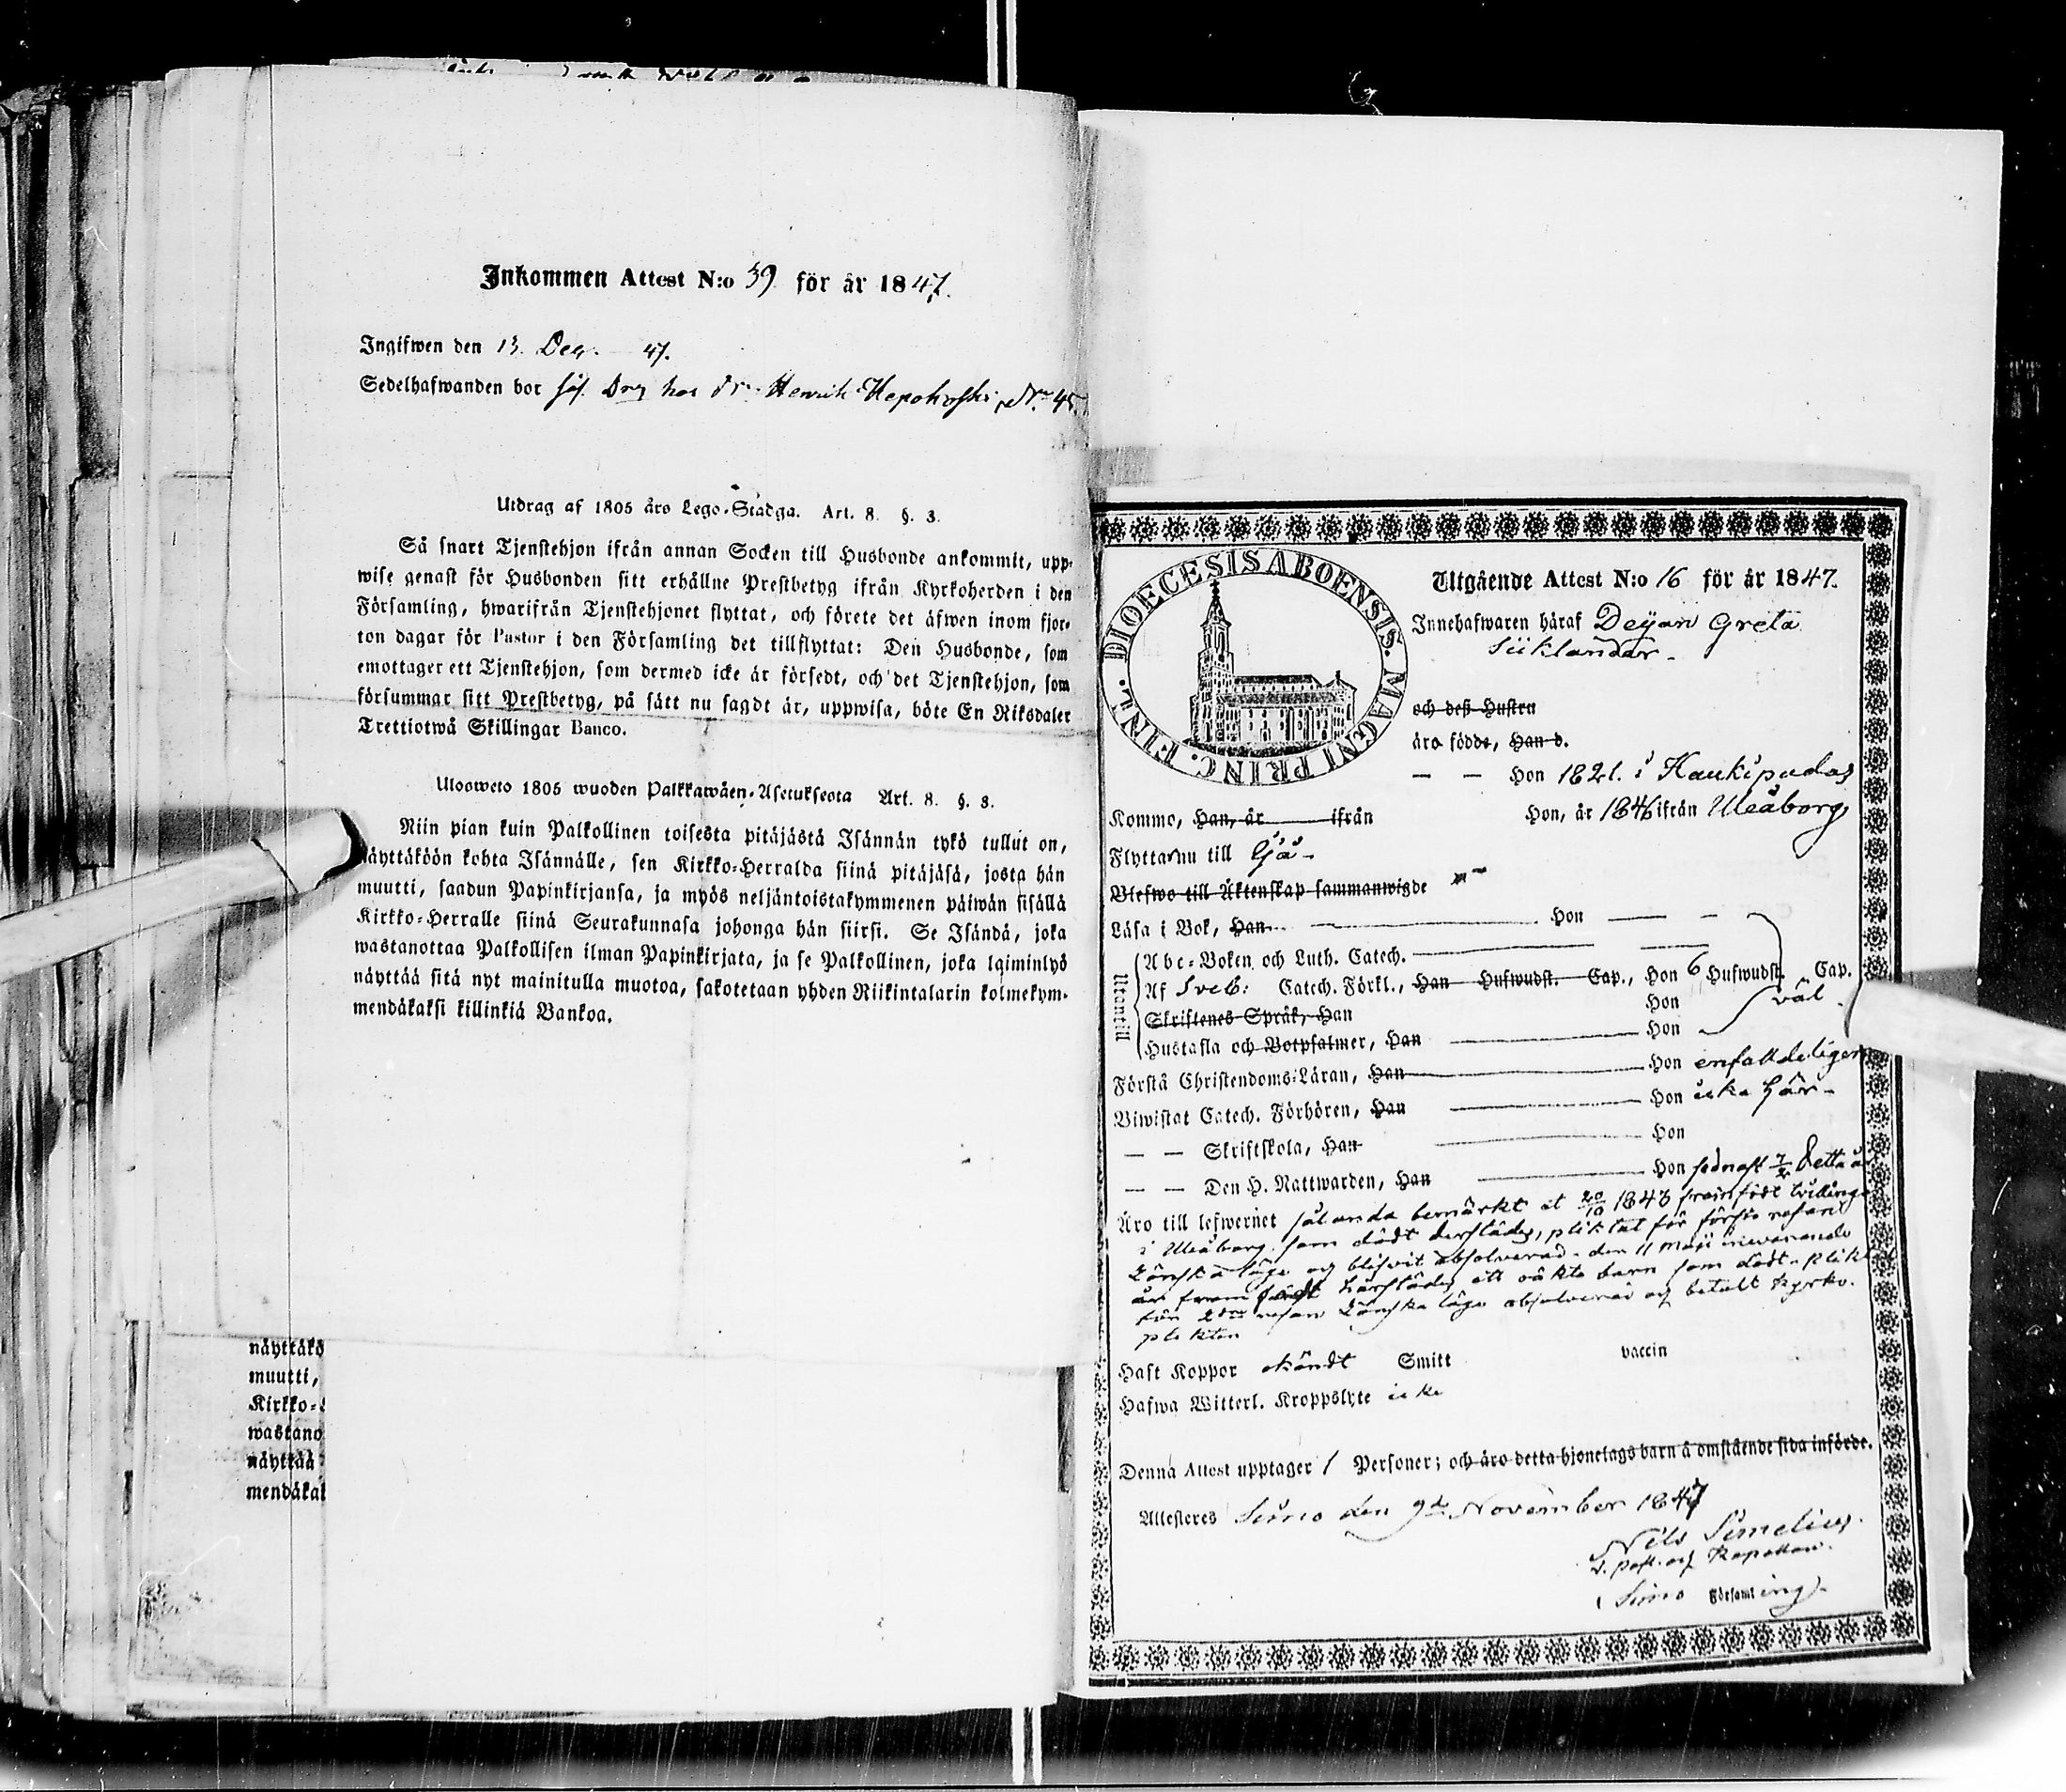 Inkommen Attest N:o 39 för år 1847.
Ingifwen den 13. Dec. 47.
Sedelhafwanden bor hos Henrik N:o 45.
Utdrag af 1805 års Lego-Stadga. Art. 8. §. 3.
Så snart Tjenstehjon ifrån annan Socken till Husbonde ankommit, upp-
wise genast för Husbonden sitt erhållne Prestbetyg ifrån Kyrkoherden i den
Församling, hwarifrån Tjenstehjonet flyttat, och förete det äfwen inom fjor-
ton dagar för Pastor i den Församling det tillflyttat: Den Husbonde, som
emottager ett Tjenstehjon, som dermed icke är försedt, och det Tjenstehjon, som
försummar sitt Prestbetyg, på sätt nu sagdt är, uppwisa, böte En Riksdaler
Trettiotwå Skillingar Banco.
Ulosweto 1805 wuoden Palkkawäen-Asetuksesta Art. 8. §. 3.
Niin pian kuin Palkollinen toisesta pitäjästä Isännän tykö tullut on,
näyttäköön kohta Isännälle, sen Kirkko-Herralda siinä pitäjäsä, josta hän
muutti, saadun Papinkirjansa, ja myös neljäntoistakymmenen päiwän sisällä
Kirkko-Herralle siinä Seurakunnasa johonga hän siirsi. Se Isändä, joka
wastanottaa Palkollisen ilman Papinkirjata, ja se Palkollinen, joka laiminlyö
näyttää sitä nyt mainitulla muotoa, sakotetaan yhden Riikintalarin kolmekym-
mendäkaksi killinkiä Bankoa.
näyttäkö
muutti,
Kirkko-
wastano
näyttää
mendäkak
DIOECESIS ABOENSIS. MAGNI PRINC. FINL.
Utgående Attest N:o 16 för år 1847.
Innehafwaren häraf Deijan Greta
Siiklander.
och dess Hustru
äro födde, Han d.
— — Hon 1821. i Haukipudas
Kommo, Han, år ifrån Hon, år 1846 ifrån Uleåborg
Flytta nu till Ijå.
Blefwo till Äktenskap sammanwigde
Läsa i Bok, Han Hon
Utantill
Abc-Boken och Luth. Catech.
Af Sveb: Catech. Förkl., Han Hufwudst. Cap., Hon 6 Hufwudst. Cap.
Skriftenes Språk, Han Hon väl
Hustafla och Botpsalmer, Han Hon
Första Christendoms-Läran, Han Hon enfaldeligen
Biwistat Catech. Förhören, Han Hon icke här
— — Skriftskola, Han Hon
— — Den H. Nattwarden, Han Hon sednast 7/2 detta år
Äro till lefwernet sålunda bemärkt at 20/10 1843 framfödt tvillingar
i Uleåborg som dödt derstädes, pliktat för första resan
Lönska läge och blifvit absolverad. den 11 Maji innevarande
år framfödt härstädes ett oäkta barn som dödt. plikt
för 2dra resan Lönska läge absolverad och betalt kyrko-
plikten
Haft Koppor okändt Smitt vaccin
Hafwa Witterl. Kroppslyte icke
Denna Attest upptager 1 Personer; och äro detta hjonelags barn å omstående sida införde.
Attesteres Simo den 9de November 1847
Nils Simelius
Kapellan.
Simo Församling